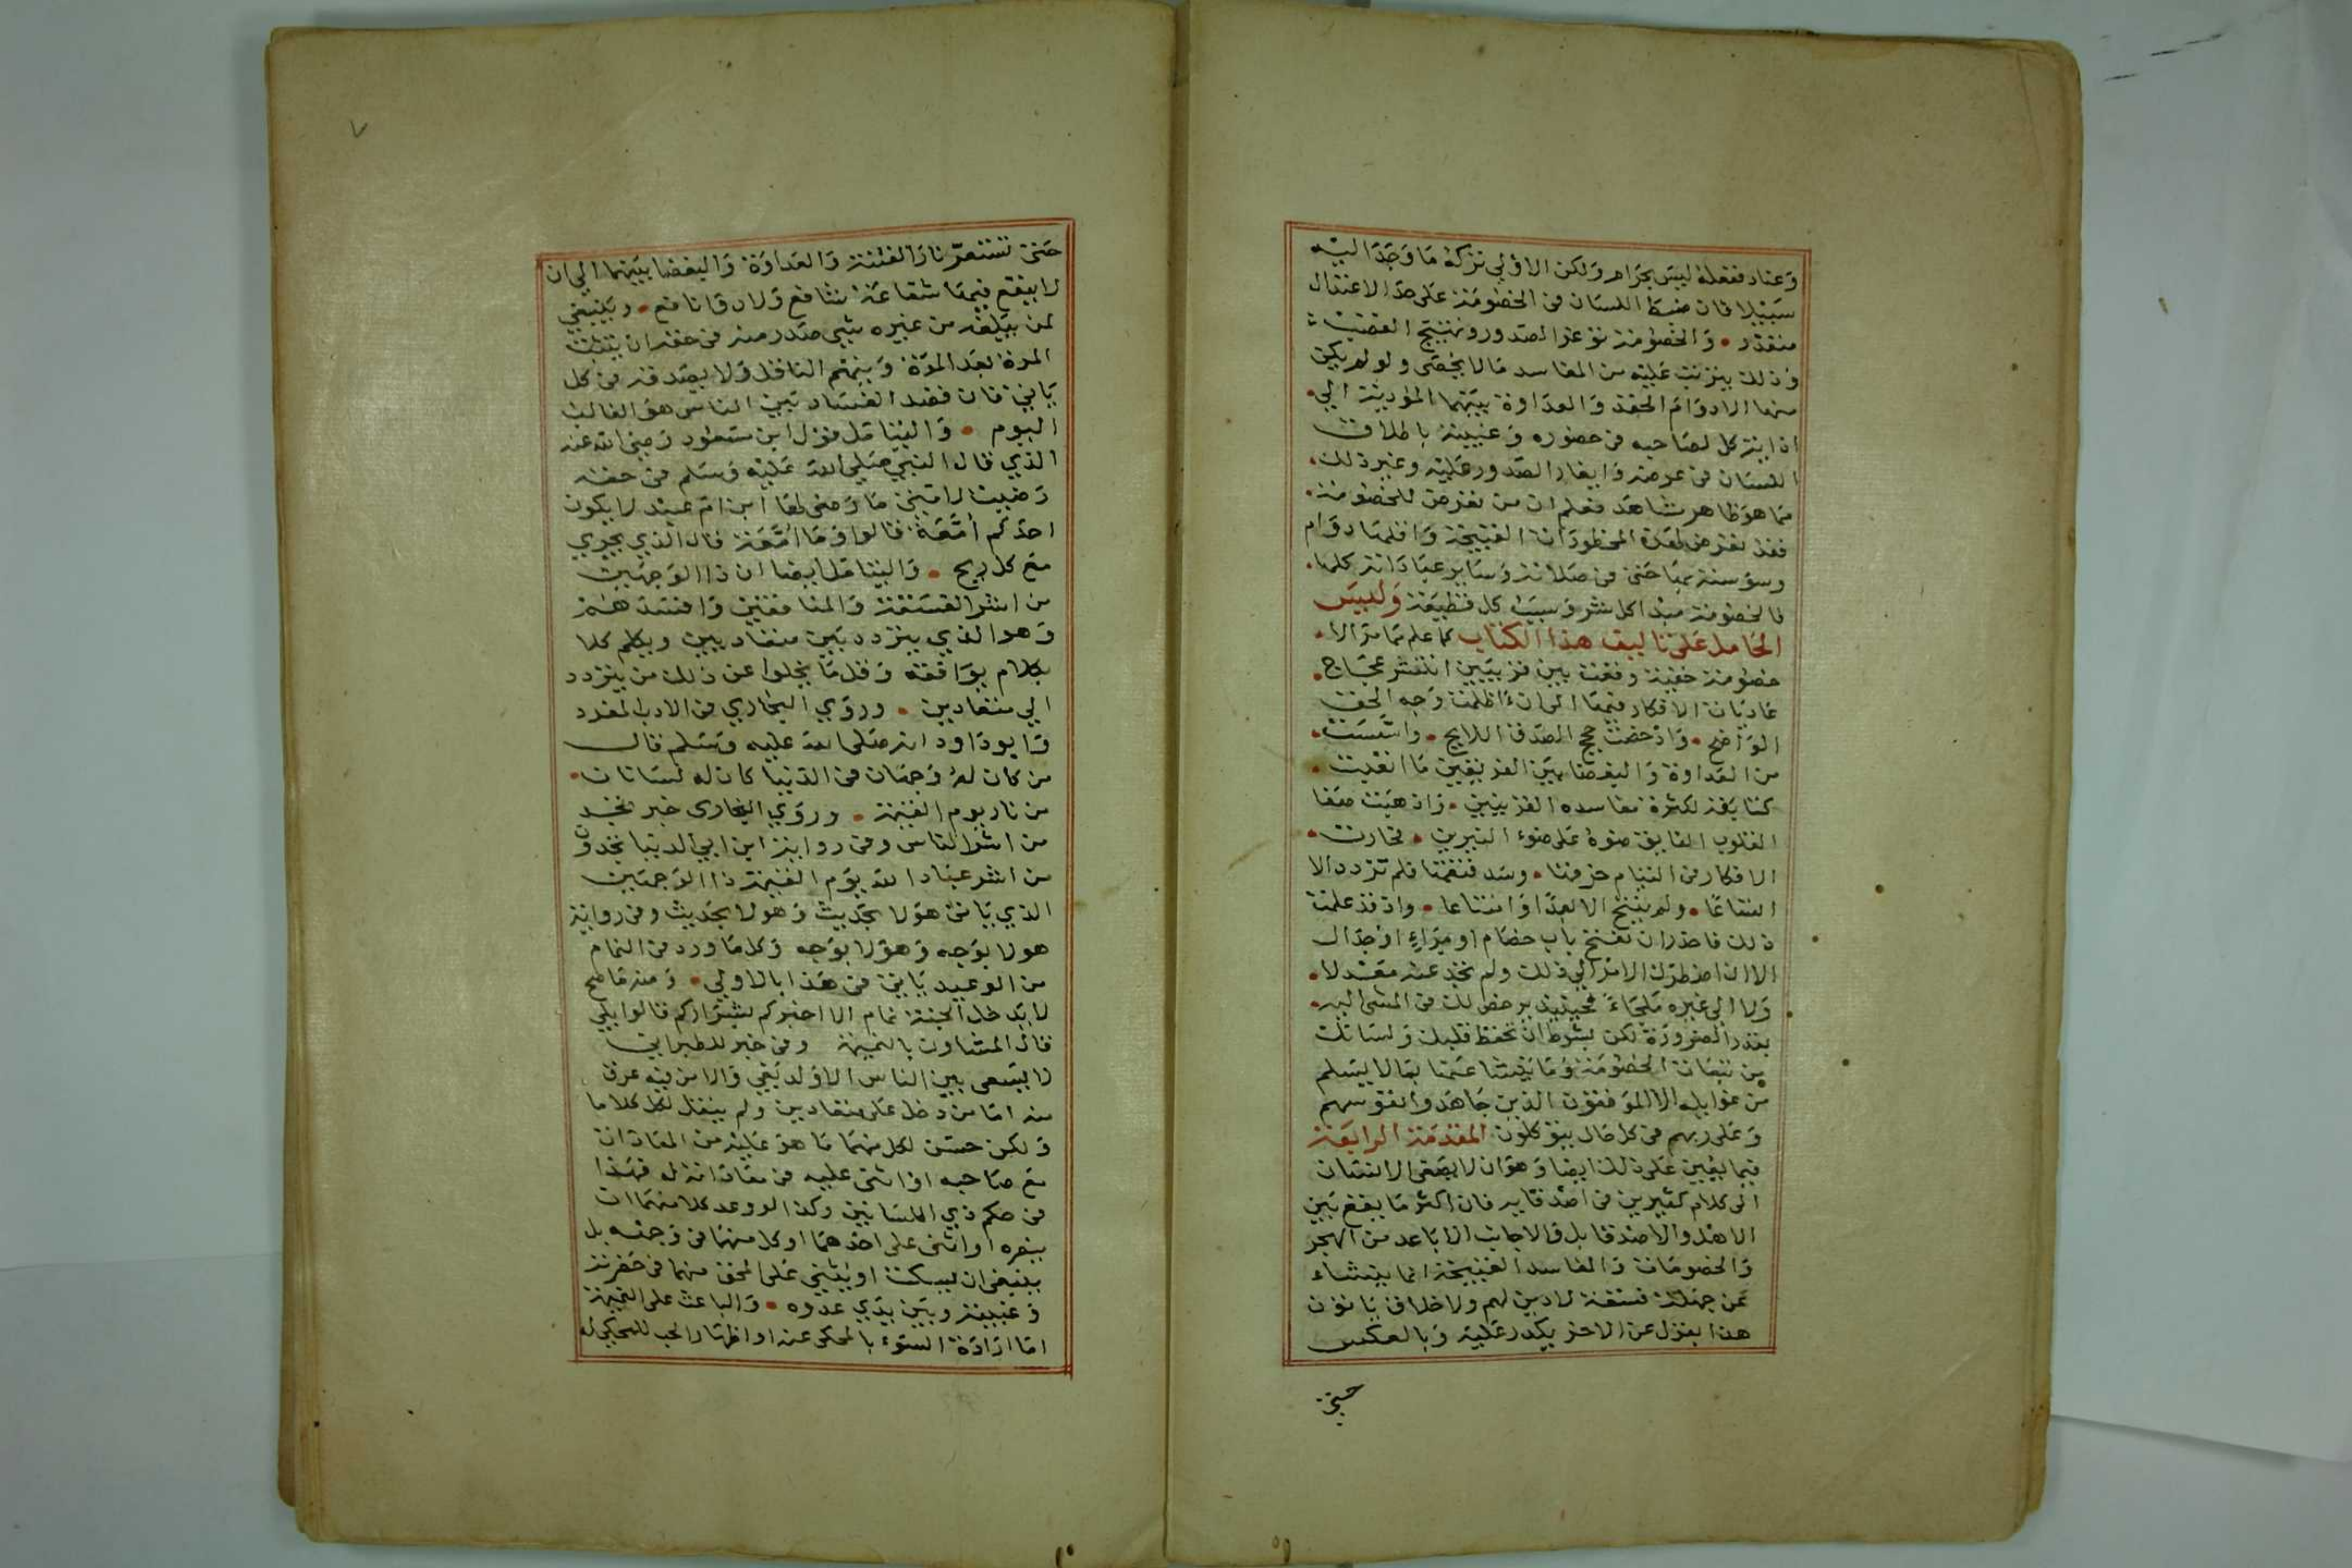 وعناد ففعله ليس بحرام ولكن الاولى تركه ما وجد اليه
سبيلا فان ضبط اللسان في الخصومة على حد الاعتدال
متعذر • والخصومة توغر الصدور وتهيج الغضب
وذلك يترتب عليه من المفاسد ما لا يحصى ولو لم يكن
منها الا دوام الحقد والعداوة بينهما المودية الى
اذاية كل لصاحبه في حضوره وغيبته باطلاق
اللسان في عرضه وايغار الصدور عليه وغير ذلك •
مما هو ظاهر شاهد فعلم ان من تعرض للخصومة •
فقد تعرض لهذه المحظورات القبيحة واقلها دوام
وسوسته بها حتى في صلاته وساير عباداته كلها •
فالخصومة مبدا كل شر وسبب كل فظيعة وليس
الحامل على تاليف هذا الكتاب كما علم مما مر الا •
خصومة خفية وقعت بين فريقين انتشر عجاج •
غاديات الافكار فيها الى ان اظلمت وجه الحق
الواضح • وادحضت حجج الصدق اللايح • واسست •
من العداوة والبغضا بين الفريقين ما انقلبت •
لكثرة مفاسده الفريقين • واذهبت صفا
القلوب الفايق ضوه على ضوء النيرين • فحارت •
الافكار في التيام خرقها • وسد فتقها فلم تزدد الا
اتساعا • ولم ينتج الا بعدا وامتناعا • واذ قد علمت
ذلك فاحذر ان تفتح باب خصام او مراء او جدال
الا ان اضطرك الامر الى ذلك ولم تجد عنه معتدلا •
ولا الى غيره ملجاء فحينيذ يرخص لك في المشي اليه •
بقدر الضرورة لكن بشرط ان تحفظ قلبك ولسانك
من تبعات الخصومة وما ينشا عنها بما لا يسلم
من غوايله الا الموفقون الذين جاهدوا نفوسهم
وعلى ربهم في كل حال يتوكلون المقدمة الرابعة
فيما يعين على ذلك ايضا وهو ان لا يصغى الانسان
الى كلام كثيرين في اصدقايه فان اكثر ما يقع بين
الاهل والاصدقا بل والاجانب الاباعد من الهجر
والخصومات والمفاسد القبيحة انما ينشاء
عن جهلة فسقة لا دين لهم ولا خلاق ياتون
هذا بقول عن الاخر يكدر عليه وبالعكس
حتى
٧
حتى تستعر نار الفتنة والعداوة والبغضا بينهما الى ان
لا يقع فيها شفاعة شافع ولا نافع • وينبغي
لمن يبلغه من غيره شي صدر منه في حقه ان يتثبت
المرة بعد المرة ويتهم الناقل ولا يصدقه في كل
ياتي فان قصد الفساد بين الناس هو الغالب
اليوم • واليتامل قول ابن مسعود رضي الله عنه
الذي قال النبي صلى الله عليه وسلم في حقه
رضيت لامتي ما رضي لها ابن ام عبد لا يكون
احدكم أمعة قالوا وما أمعة قال الذي يجري
مع كل ريح • واليتامل ايضا ان ذا الوجهين
من اشر الفسقة والمنافقين وافسدهم
وهو الذي يتردد بين متعاديين ويكلم كلا
بكلام يوافقه وقل ما يخلوا عن ذلك من يتردد
الى متعاديين • وروي البخاري في الادب المفرد
وابو داود انه صلى الله عليه وسلم قال
من كان له وجهان في الدنيا كان له لسانان •
من نار يوم القيمة • وروي البخارى خبر تجد
من اشر الناس وفي رواية ابن ابي الدنيا تجدون
من اشر عباد الله يوم القيمة ذا الوجهين
الذي ياتي هولا بحديث وهولا بحديث وفي رواية
هولا بوجه وهولا بوجه وكل ما ورد في النمام
من الوعيد ياتي في هذا بالاولى • ومنه ما صح
لا يدخل الجنة نمام الا اخبركم بشراركم قالوا بلى
قال المشاون بالنميمة وفي خبر للطبراني
لا يسعى بين الناس الا ولد بغي والا من فيه عرق
منه اما من دخل على متعاديين ولم ينقل لكل كلاما
ولكن حسن لكل منهما ما هو عليه من المعادات
مع صاحبه او اثنى عليه في معاداته له فهذا
في حكم ذي اللسانين وكذا لو وعد كلا منهما ان
ينصره او اثنى على احدهما او كل منهما في وجهه بل
ينبغي ان يسكت او يثني على المحق منهما في حضرته
وغيبته وبين يدي عدوه • والباعث على النميمة
اما ارادة السوء بالمحكى عنه او اظهار الحب للمحكي له